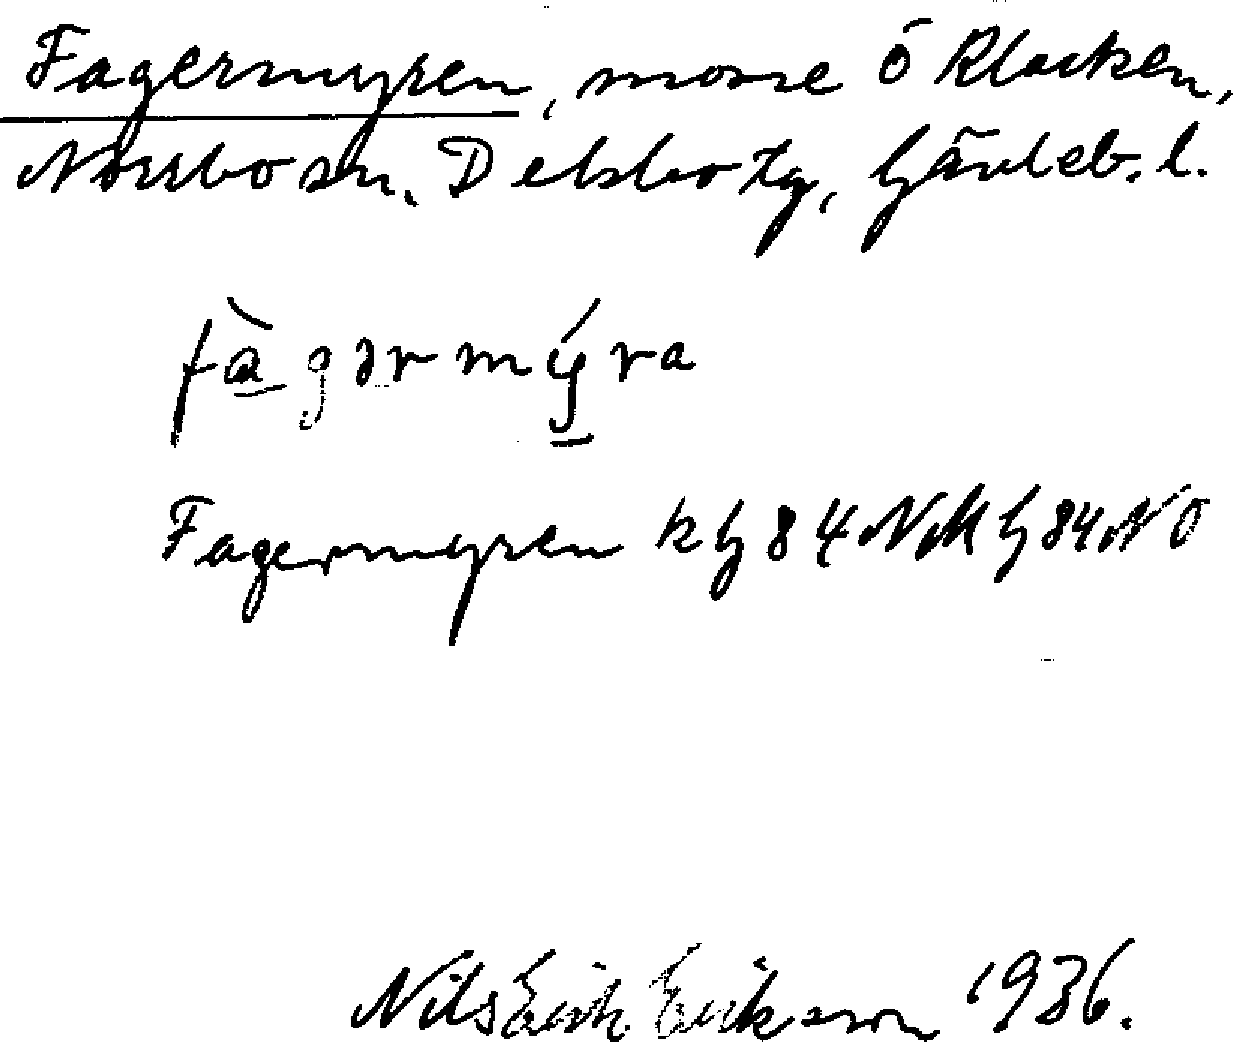 Fagermyren, mosse ö Klacken,
Norrbo sn. Delsbo tg, Gävleb. l.
fàgərmýra
Fagermyren kG84NM G84NO
Nils Erik Erikson 1936.